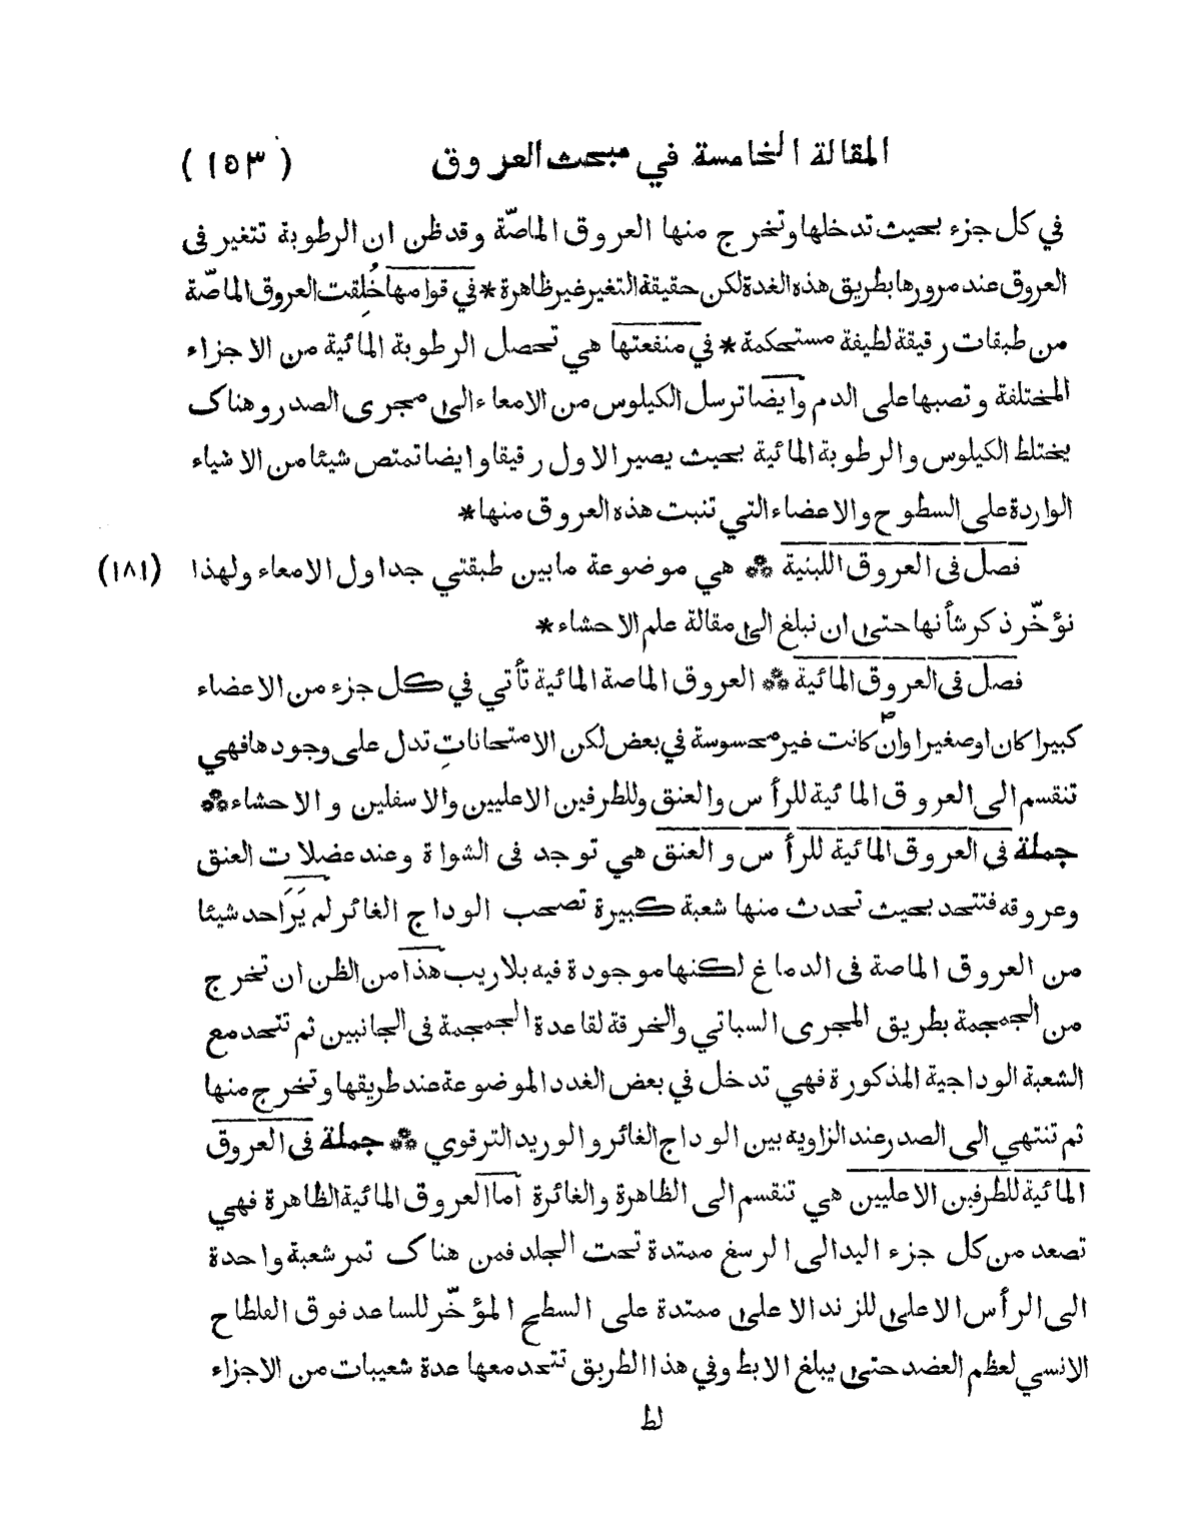 المقالة الخامسة في مبحث العروق (١٥٣)
في كل جزء بحيث تدخلها وتخرج منها العروق الماصّة وقد ظن ان الرطوبة تتغير فى
العروق عند مرورها بطريق هذه الغدة لكن حقيقة التغير غير ظاهرة * في قوامها خُلِقت العروق الماصّة
من طبقات رقيقة لطيفة مستحكمة * في منفعتها هي تحصل الرطوبة المائية من الاجزاء
المختلفة وتصبها على الدم وايضا ترسل الكيلوس من الامعاء الى مجرى الصدر وهناك
يختلط الكيلوس والرطوبة المائية بحيث يصير الاول رقيقا وايضا تمتص شيئا من الاشياء
الواردة على السطوح والاعضاء التي تنبت هذه العروق منها *
فصل فى العروق اللبنية ⁂ هي موضوعة مابين طبقتي جداول الامعاء ولهذا (١٨١)
نؤخّر ذكر شأنها حتى ان نبلغ الى مقالة علم الاحشاء *
فصل فى العروق المائية ⁂ العروق الماصة المائية تأتي في كل جزء من الاعضاء
كبيرا كان او صغيرا وان كانت غير محسوسة في بعض لكن الامتحاناتِ تدل على وجودها فهي
تنقسم الى العروق المائية للرأس والعنق وللطرفين الاعليين والاسفلين والاحشاء ⁂
جملة في العروق المائية للرأس والعنق هي توجد فى الشواة وعند عضلات العنق
وعروقه فتتحد بحيث تحدث منها شعبة كبيرة تصحب الوداج الغائر لم يَرَ احد شيئا
من العروق الماصة فى الدماغ لكنها موجودة فيه بلاريب هذا من الظن ان تخرج
من الجمجمة بطريق المجرى السباتي والخرقة لقاعدة الجمجمة فى الجانبين ثم تتحد مع
الشعبة الوداجية المذكورة فهي تدخل في بعض الغدد الموضوعة عند طريقها وتخرج منها
ثم تنتهي الى الصدر عند الزاويه بين الوداج الغائر والوريد الترقوي ⁂ جملة فى العروق
المائية للطرفين الاعليين هي تنقسم الى الظاهرة والغائرة اما العروق المائية الظاهرة فهي
تصعد من كل جزء اليد الى الرسغ ممتدة تحت الجلد فمن هناك تمر شعبة واحدة
الى الرأس الاعلى للزند الاعلى ممتدة على السطح المؤخّر للساعد فوق الفلطاح
الانسي لعظم العضد حتى يبلغ الابط وفي هذا الطريق تتحد معها عدة شعيبات من الاجزاء
لط